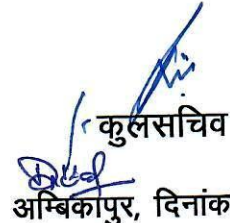 कुलसचिव
अम्बिकापुर, दिनांक